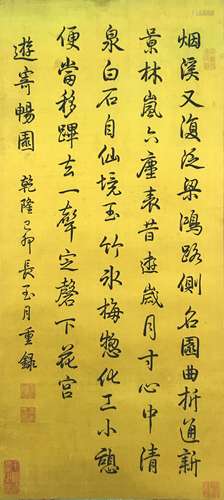 烟溪又復泛梁鴻路側名園曲折通新
景林嵐六塵表昔遊歲月寸心中清
泉白石自仙境玉竹冰梅惣化工小憩
便當移蹕去一聲定磬下花宮
遊寄暢園 乾隆己卯長至月重錄